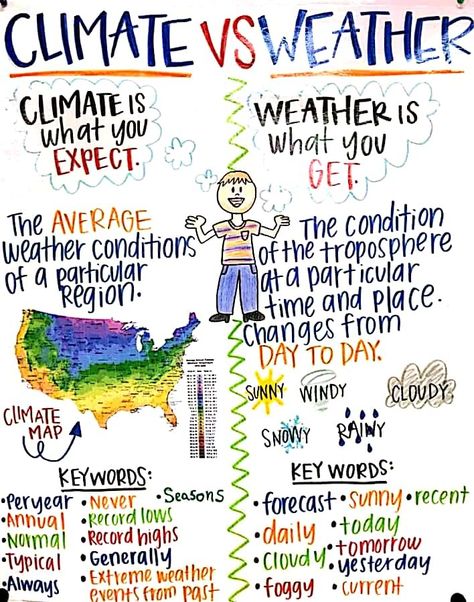 CLIMATE VS WEATHER
CLIMATE IS
what you
EXPECT.
The AVERAGE
weather conditions
of a particular
Region.
CLIMATE
MAP
KEYWORDS:
•Per year
•Annual
•Normal
•Typical
•Always
•Never
•Record lows
•Record highs
•Generally
•Extreme weather
events from past
•Seasons
WEATHER IS
what you
GET.
The condition
of the troposphere
at a particular
time and place.
Changes from
DAY TO DAY.
SUNNY
WINDY
CLOUDY
SNOWY
RAINY
KEY WORDS:
•forecast
•daily
•cloudy
•foggy
•sunny
•today
•tomorrow
•yesterday
•current
•recent